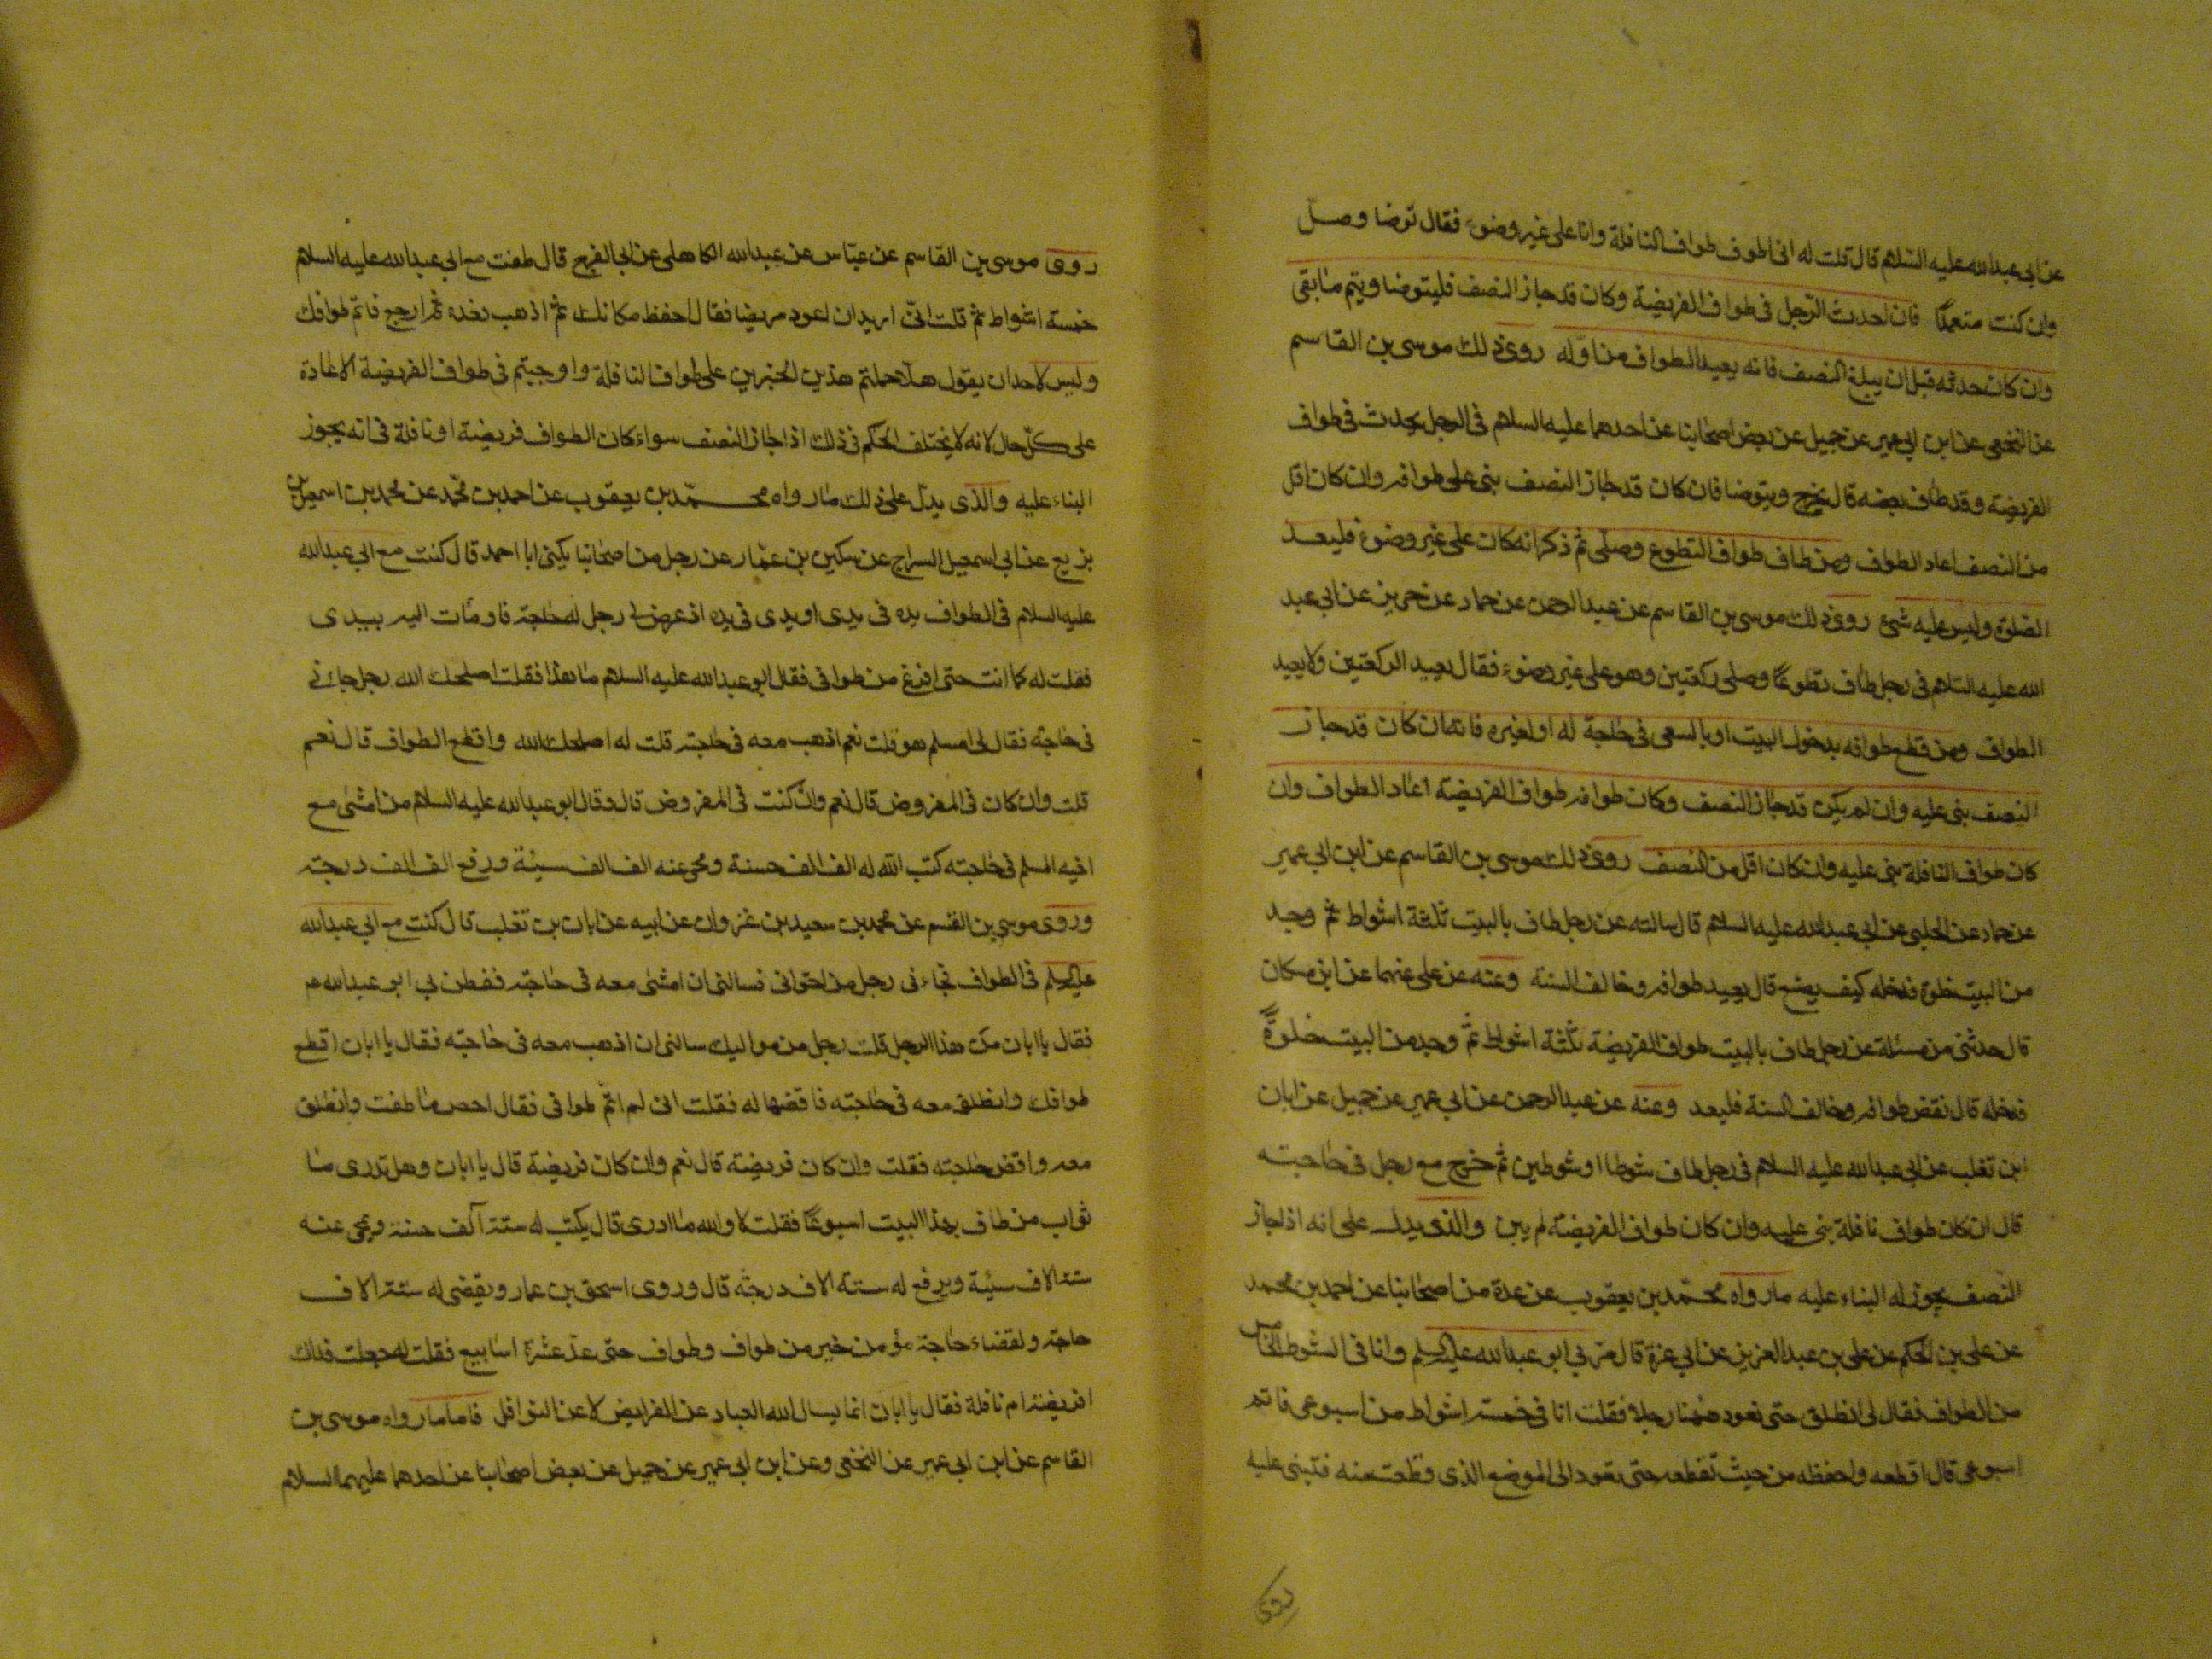 عن ابي عبدالله عليه السلام قال قلت له اني اطوف طواف النافلة وانا على غير وضوء فقال توضا وصلّ
وان كنت متعمدًا فان احدث الرّجل في طواف الفريضة وكان قد جاز النصف فليتوضا ويتم ما بقى
وان كان حدثه قبل ان يبلغ النصف فانه يعيد الطواف من اوّله روى ذلك موسى بن القاسم
عن النخعى عن ابن ابي عمير عن جميل عن بعض اصحابنا عن احدهما عليه السلام في الرجل يحدث في طواف
الفريضة وقد طاف بعضه قال يخرج ويتوضا فان كان قد جاز النصف بنى على طوافه وان كان اقل
من النصف اعاد الطواف ومن طاف طواف التطوع وصلى ثم ذكر انه كان على غير وضوء فليعد
الصّلوة وليس عليه شئ روى ذلك موسى بن القاسم عن عبد الرحمن عن حماد عن حريز عن ابي عبد
الله عليه السّلام في رجل طاف تطوعًا وصلى ركعتين وهو على غير وضوء فقال يعيد الركعتين ولا يعيد
الطواف ومن قطع طوافه بدخول البيت او بالسعى في حاجة له او لغيره فانه ان كان قد جاز
النصف بنى عليه وان لم يكن قد جاز النصف وكان طوافه طواف الفريضة اعاد الطواف وان
كان طواف النافلة بنى عليه وان كان اقل من النصف روى ذلك موسى بن القاسم عن ابن ابي عمير
عن حماد عن الحلبى عن ابي عبدالله عليه السلام قال سالته عن رجل طاف بالبيت ثلثة اشواط ثم وجد
من البيت خلوة فدخله كيف يصنع قال يعيد طوافه وخالف السنة وعنه عن على عنهما عن ابن مسكان
قال حدثنى من سئله عن رجل طاف بالبيت طواف الفريضة ثلثة اشواط ثمّ وجد من البيت خلوةً
فدخله قال نقض طوافه وخالف السنة فليعد وعنه عن عبد الرحمن عن ابي عمير عن جميل عن ابان
ابن تغلب عن ابي عبدالله عليه السلام في رجل طاف شوطا او شوطين ثم خرج مع رجل في حاجته
قال ان كان طواف نافلة بنى عليه وان كان طواف الفريضة لم يبن والذى يدل على انه اذا جاز
النّصف يجوز له البناء عليه ما رواه محمّد بن يعقوب عن عدة من اصحابنا عن احمد بن محمد
عن على بن الحكم عن على بن عبد العزيز عن ابي عزة قال مرّ بي ابو عبدالله عليه السلم وانا في الشوط الخامس
من الطواف فقال لى انطلق حتى نعود ههنا رجلا فقلت انا في خمسة اشواط من اسبوعى فاتم
اسبوعى قال اقطعه واحفظه من حيث تقطعه حتى تعود الى الموضع الذى قطعت منه فتبنى عليه
روى
روى موسى بن القاسم عن عبّاس عن عبدالله الكاهلى عن ابي الفرج قال طفت مع ابي عبدالله عليه السلام
خمسة اشواط ثم قلت انّى اريد ان اعود مريضا فقال احفظ مكانك ثم اذهب فعده ثم ارجع فاتم طوافك
وليس لاحد ان يقول هلّا حملتم هذين الخبرين على طواف النافلة واوجبتم في طواف الفريضة الاعادة
على كلّ حال لانه لا يختلف الحكم في ذلك اذا جاز النصف سواء كان الطواف فريضة او نافلة في انه يجوز
البناء عليه والذى يدلّ على ذلك ما رواه محمّد بن يعقوب عن احمد بن محّمد عن محمد بن اسمعيل بن
بزيع عن ابي اسمعيل السراج عن سكين بن عمّار عن رجل من اصحابنا يكنى ابا احمد قال كنت مع ابي عبدالله
عليه السلام في الطواف يده في يدى او يدى في يده اذ عرض لى رجل له حاجة فاومأت اليه بيدى
فقلت له كما انت حتى افرغ من طوافى فقال ابو عبدالله عليه السلام ما هذا فقلت اصلحك الله رجل جاءنى
في حاجة فقال لى امسلم هو قلت نعم اذهب معه في حاجته قلت له اصلحك الله واقطع الطواف قال نعم
قلت وان كان في المفروض قال نعم وان كنت في المفروض قال وقال ابو عبدالله عليه السلام من امشى مع
اخيه المسلم في حاجته كتب الله له الف الف حسنة ومحى عنه الف الف سيئة ورفع الف الف درجة
وروى موسى بن القسم عن محمد بن سعيد بن غزوان عن ابيه عن ابان بن تغلب قال كنت مع ابي عبدالله
عليه السلم في الطواف فجاءنى رجل من اخوانى فسالنى ان امشى معه في حاجته ففطن بي ابو عبدالله ع
فقال يا ابان من هذا الرجل قلت رجل من مواليك سالنى ان اذهب معه في حاجته فقال يا ابان اقطع
طوافك وانطلق معه في حاجته فاقضها له فقلت انى لم اتمّ طوافى فقال احص ما طفت وانطلق
معه واقض حاجته فقلت وان كان فريضة قال نعم وان كان فريضة قال يا ابان وهل تدرى ما
ثواب من طاف بهذا البيت اسبوعًا فقلت لا والله ما ادرى قال يكتب له ستة آلف حسنة ويمحى عنه
ستة الاف سيئة ويرفع له ستة الاف درجة قال وروى اسحق بن عمار ويقضى له ستة الاف
حاجة ولقضاء حاجة مؤمن خير من طواف وطواف حتى عد عشرة اسابيع فقلت له جعلت فداك
افريضة ام نافلة فقال يا ابان انما يسال الله العباد عن الفرايض لا عن النوافل فاما ما رواه موسى بن
القاسم عن ابن ابي عمير عن النخعى وعن ابن ابي عمير عن جميل عن بعض اصحابنا عن احدهما عليهما السلام